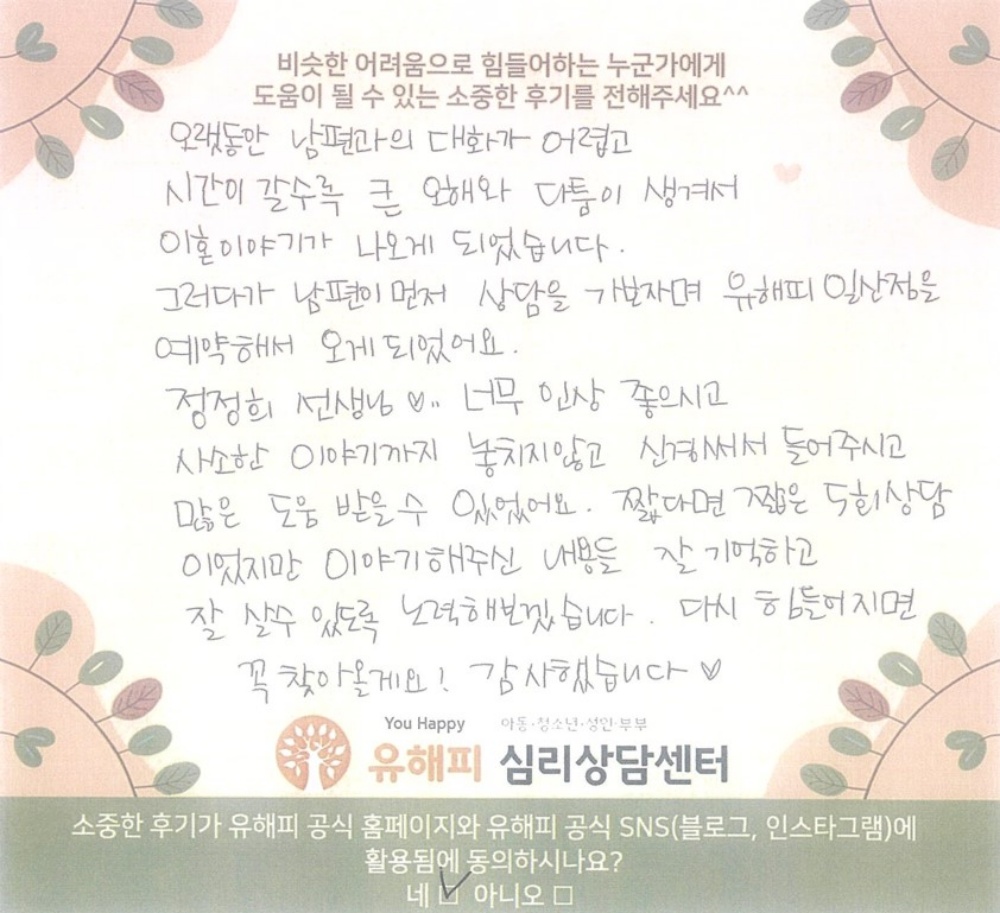 비슷한 어려움으로 힘들어하는 누군가에게
도움이 될 수 있는 소중한 후기를 전해주세요^^
오랫동안 남편과의 대화가 어렵고
시간이 갈수록 큰 오해와 다툼이 생겨서
이혼이야기가 나오게 되었습니다.
그러다가 남편이 먼저 상담을 가보자며 유해피 일산점을
예약해서 오게 되었어요.
정정희 선생님♡.. 너무 인상 좋으시고
사소한 이야기까지 놓치지않고 신경써서 들어주시고
많은 도움 받을 수 있었어요. 짧다면 짧은 5회상담
이었지만 이야기해주신 내용들 잘 기억하고
잘 살수 있도록 노력해보겠습니다. 다시 힘들어지면
꼭 찾아올게요! 감사했습니다♡
You Happy 아동·청소년·성인·부부
유해피 심리상담센터
소중한 후기가 유해피 공식 홈페이지와 유해피 공식 SNS(블로그, 인스타그램)에
활용됨에 동의하시나요?
네 ☑ 아니오 □